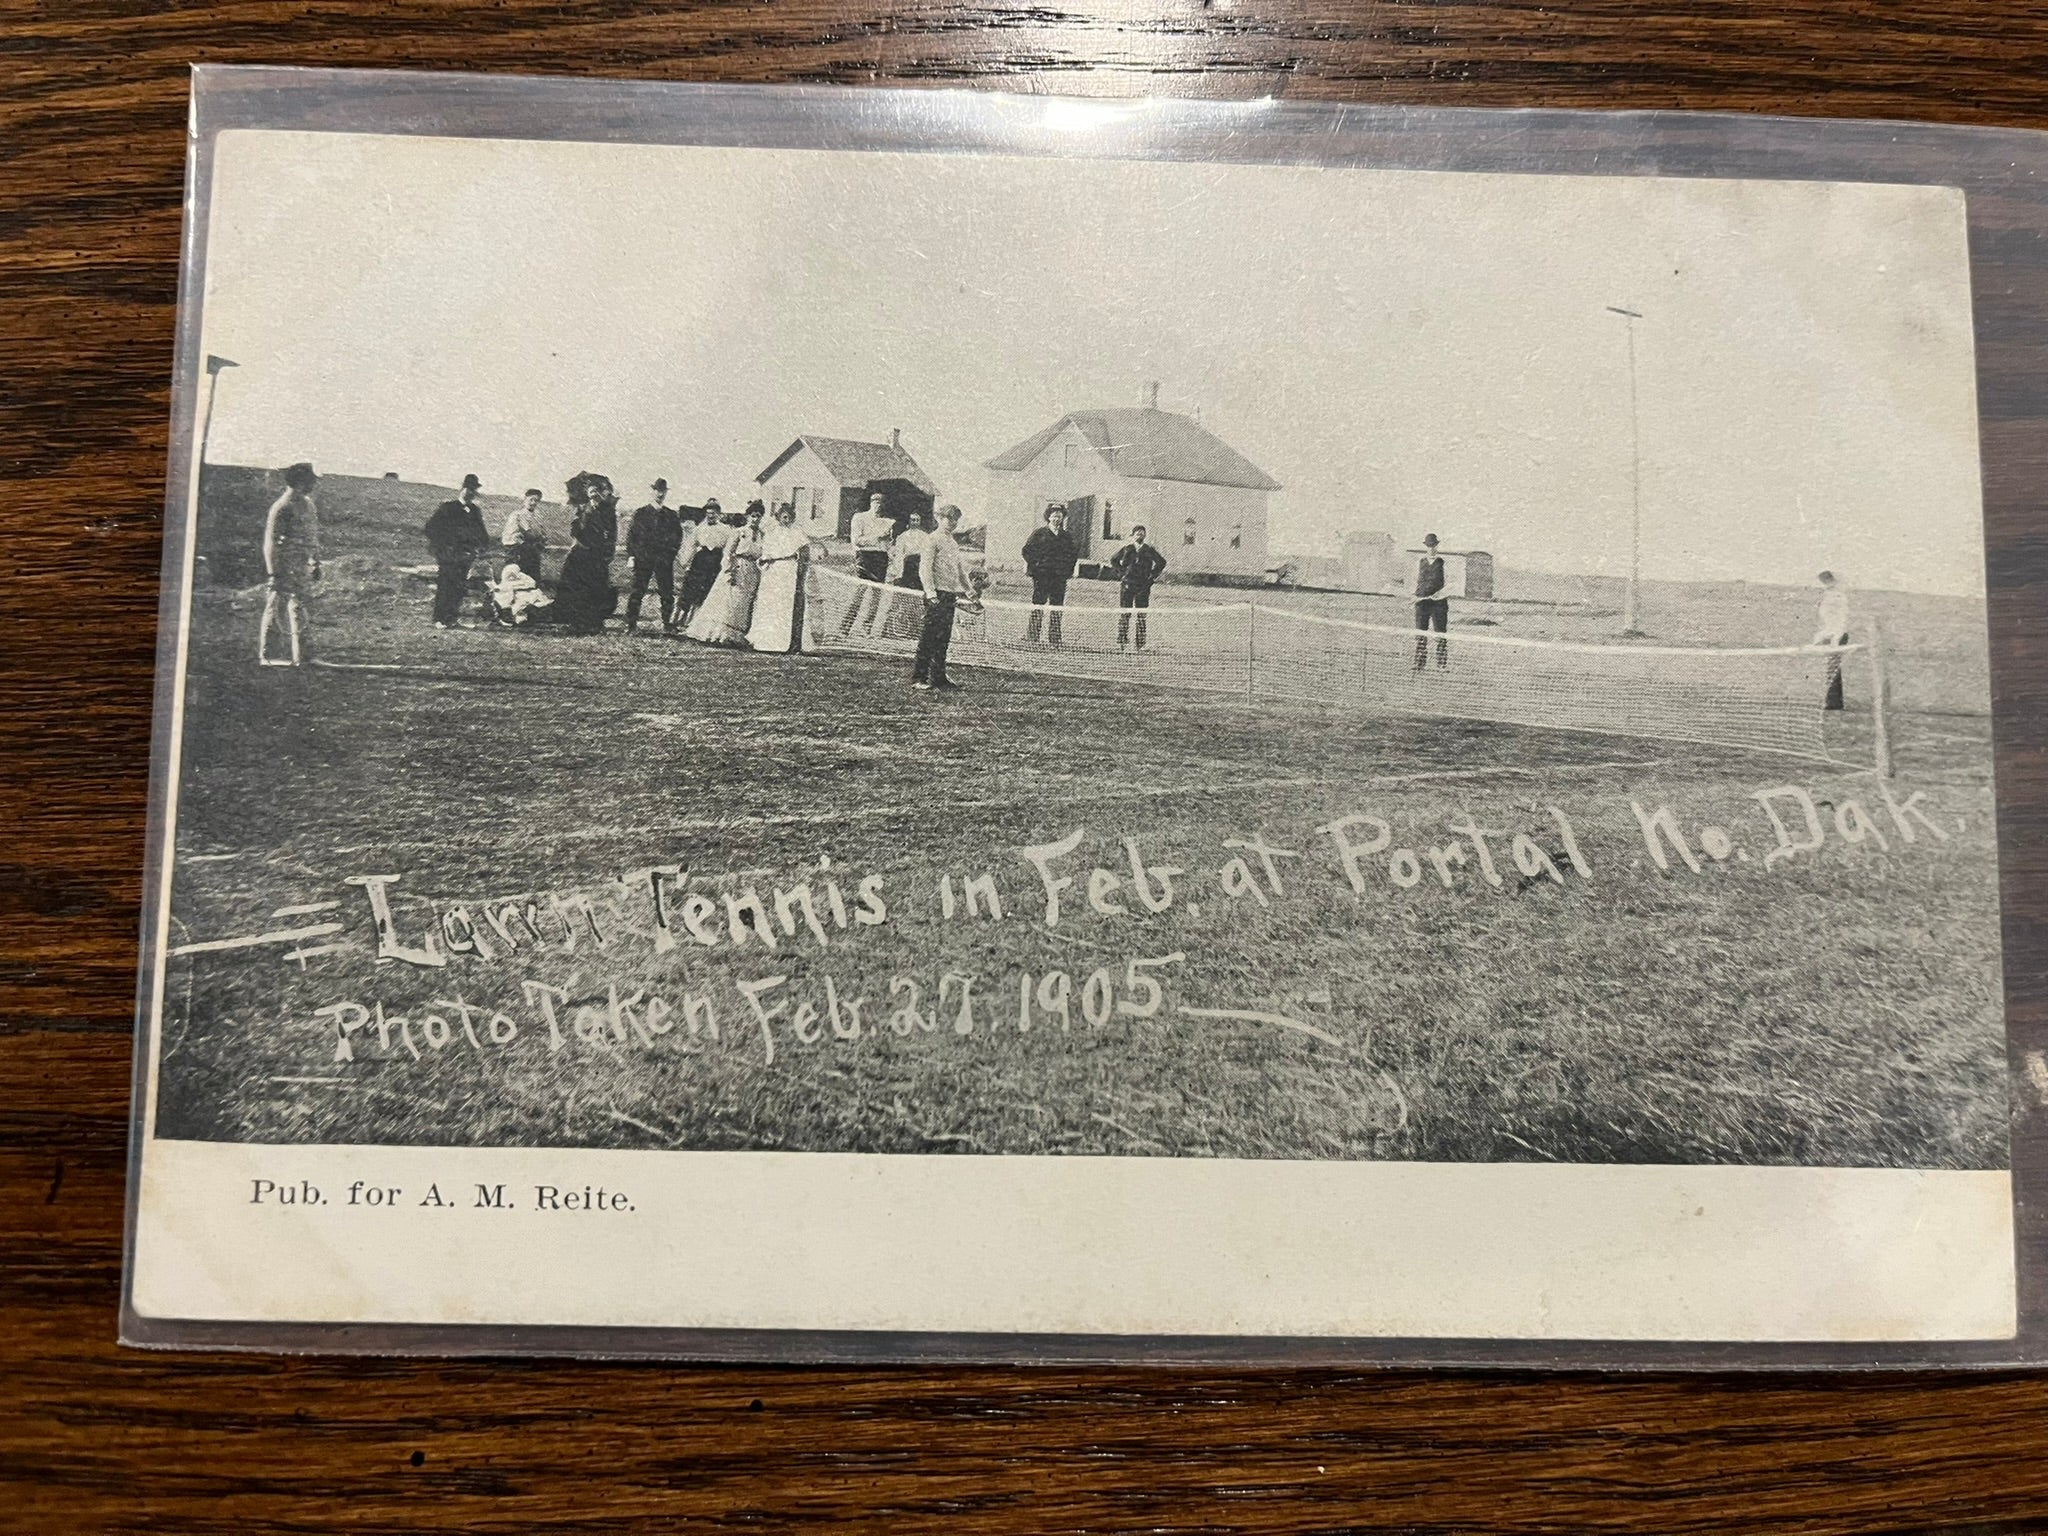 Lawn Tennis in Feb. at Portal No. Dak.
Photo Taken Feb. 27. 1905
Pub. for A. M. Reite.